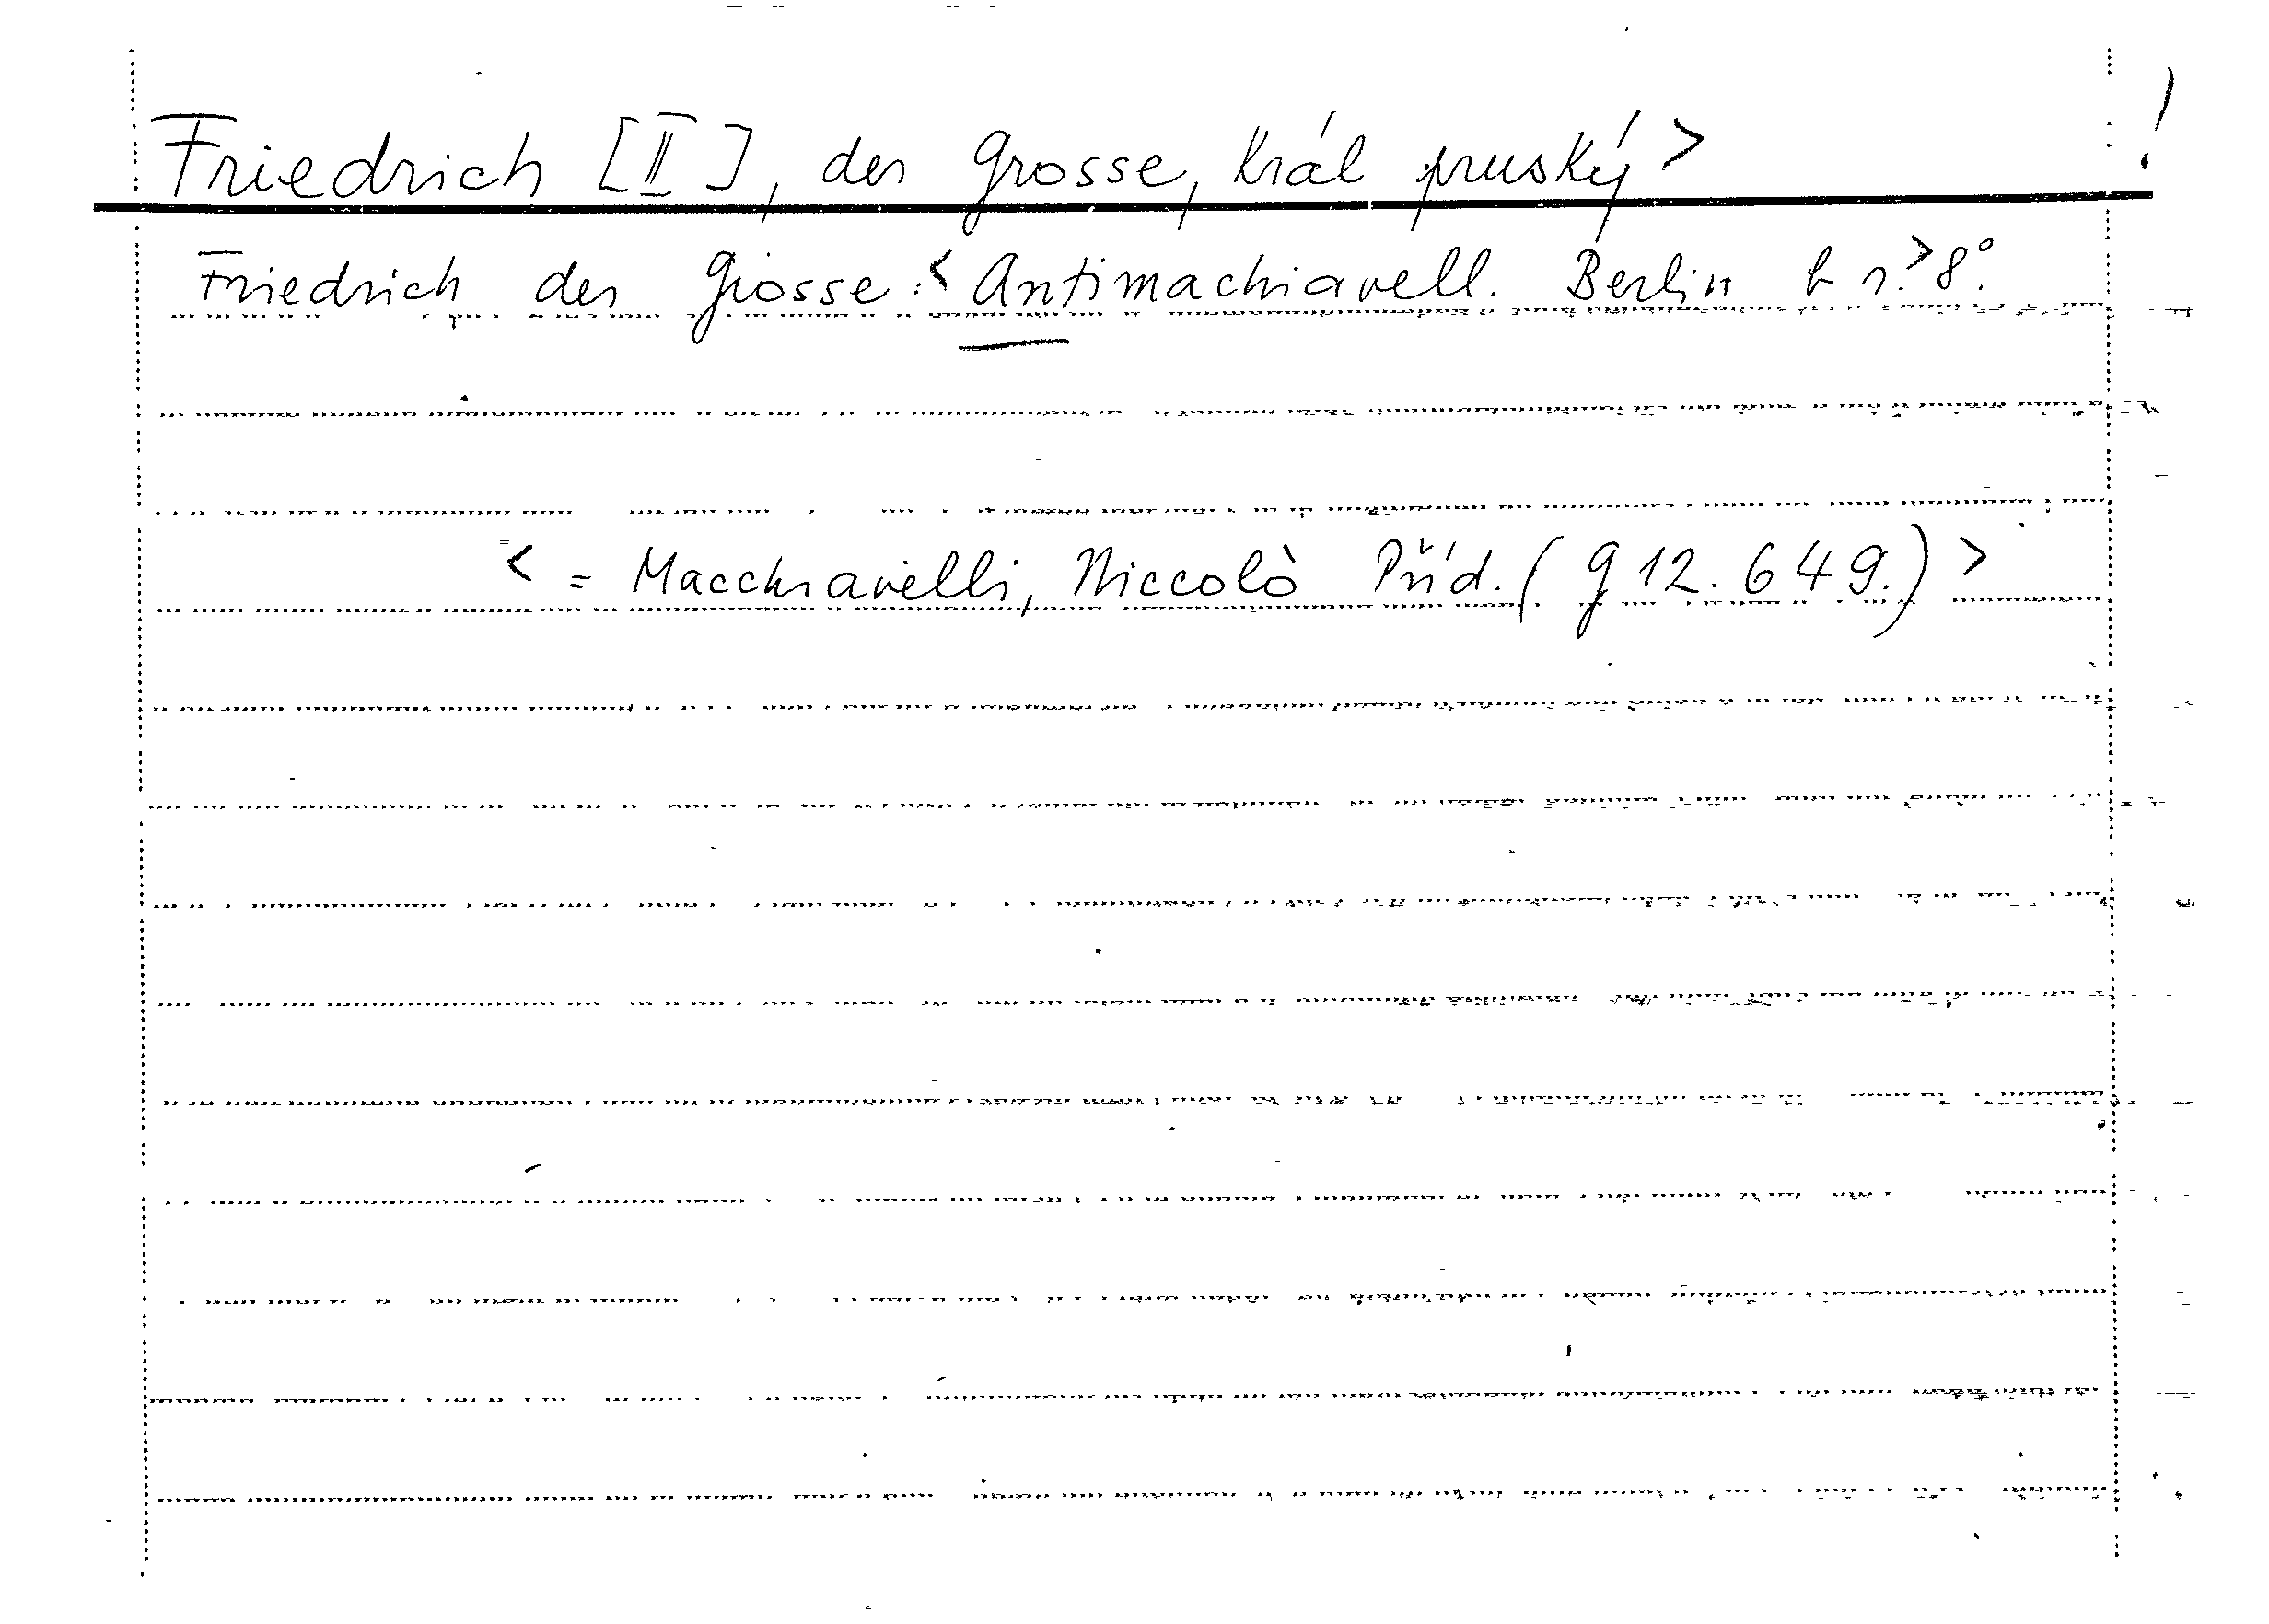 Friedrich [II], der Grosse, král pruský> !
Friedrich der Grosse:< Antimachiavell. Berlin b r.> 8°.
< = Macchiavelli, Niccolò Příd. (g 12. 649.) >